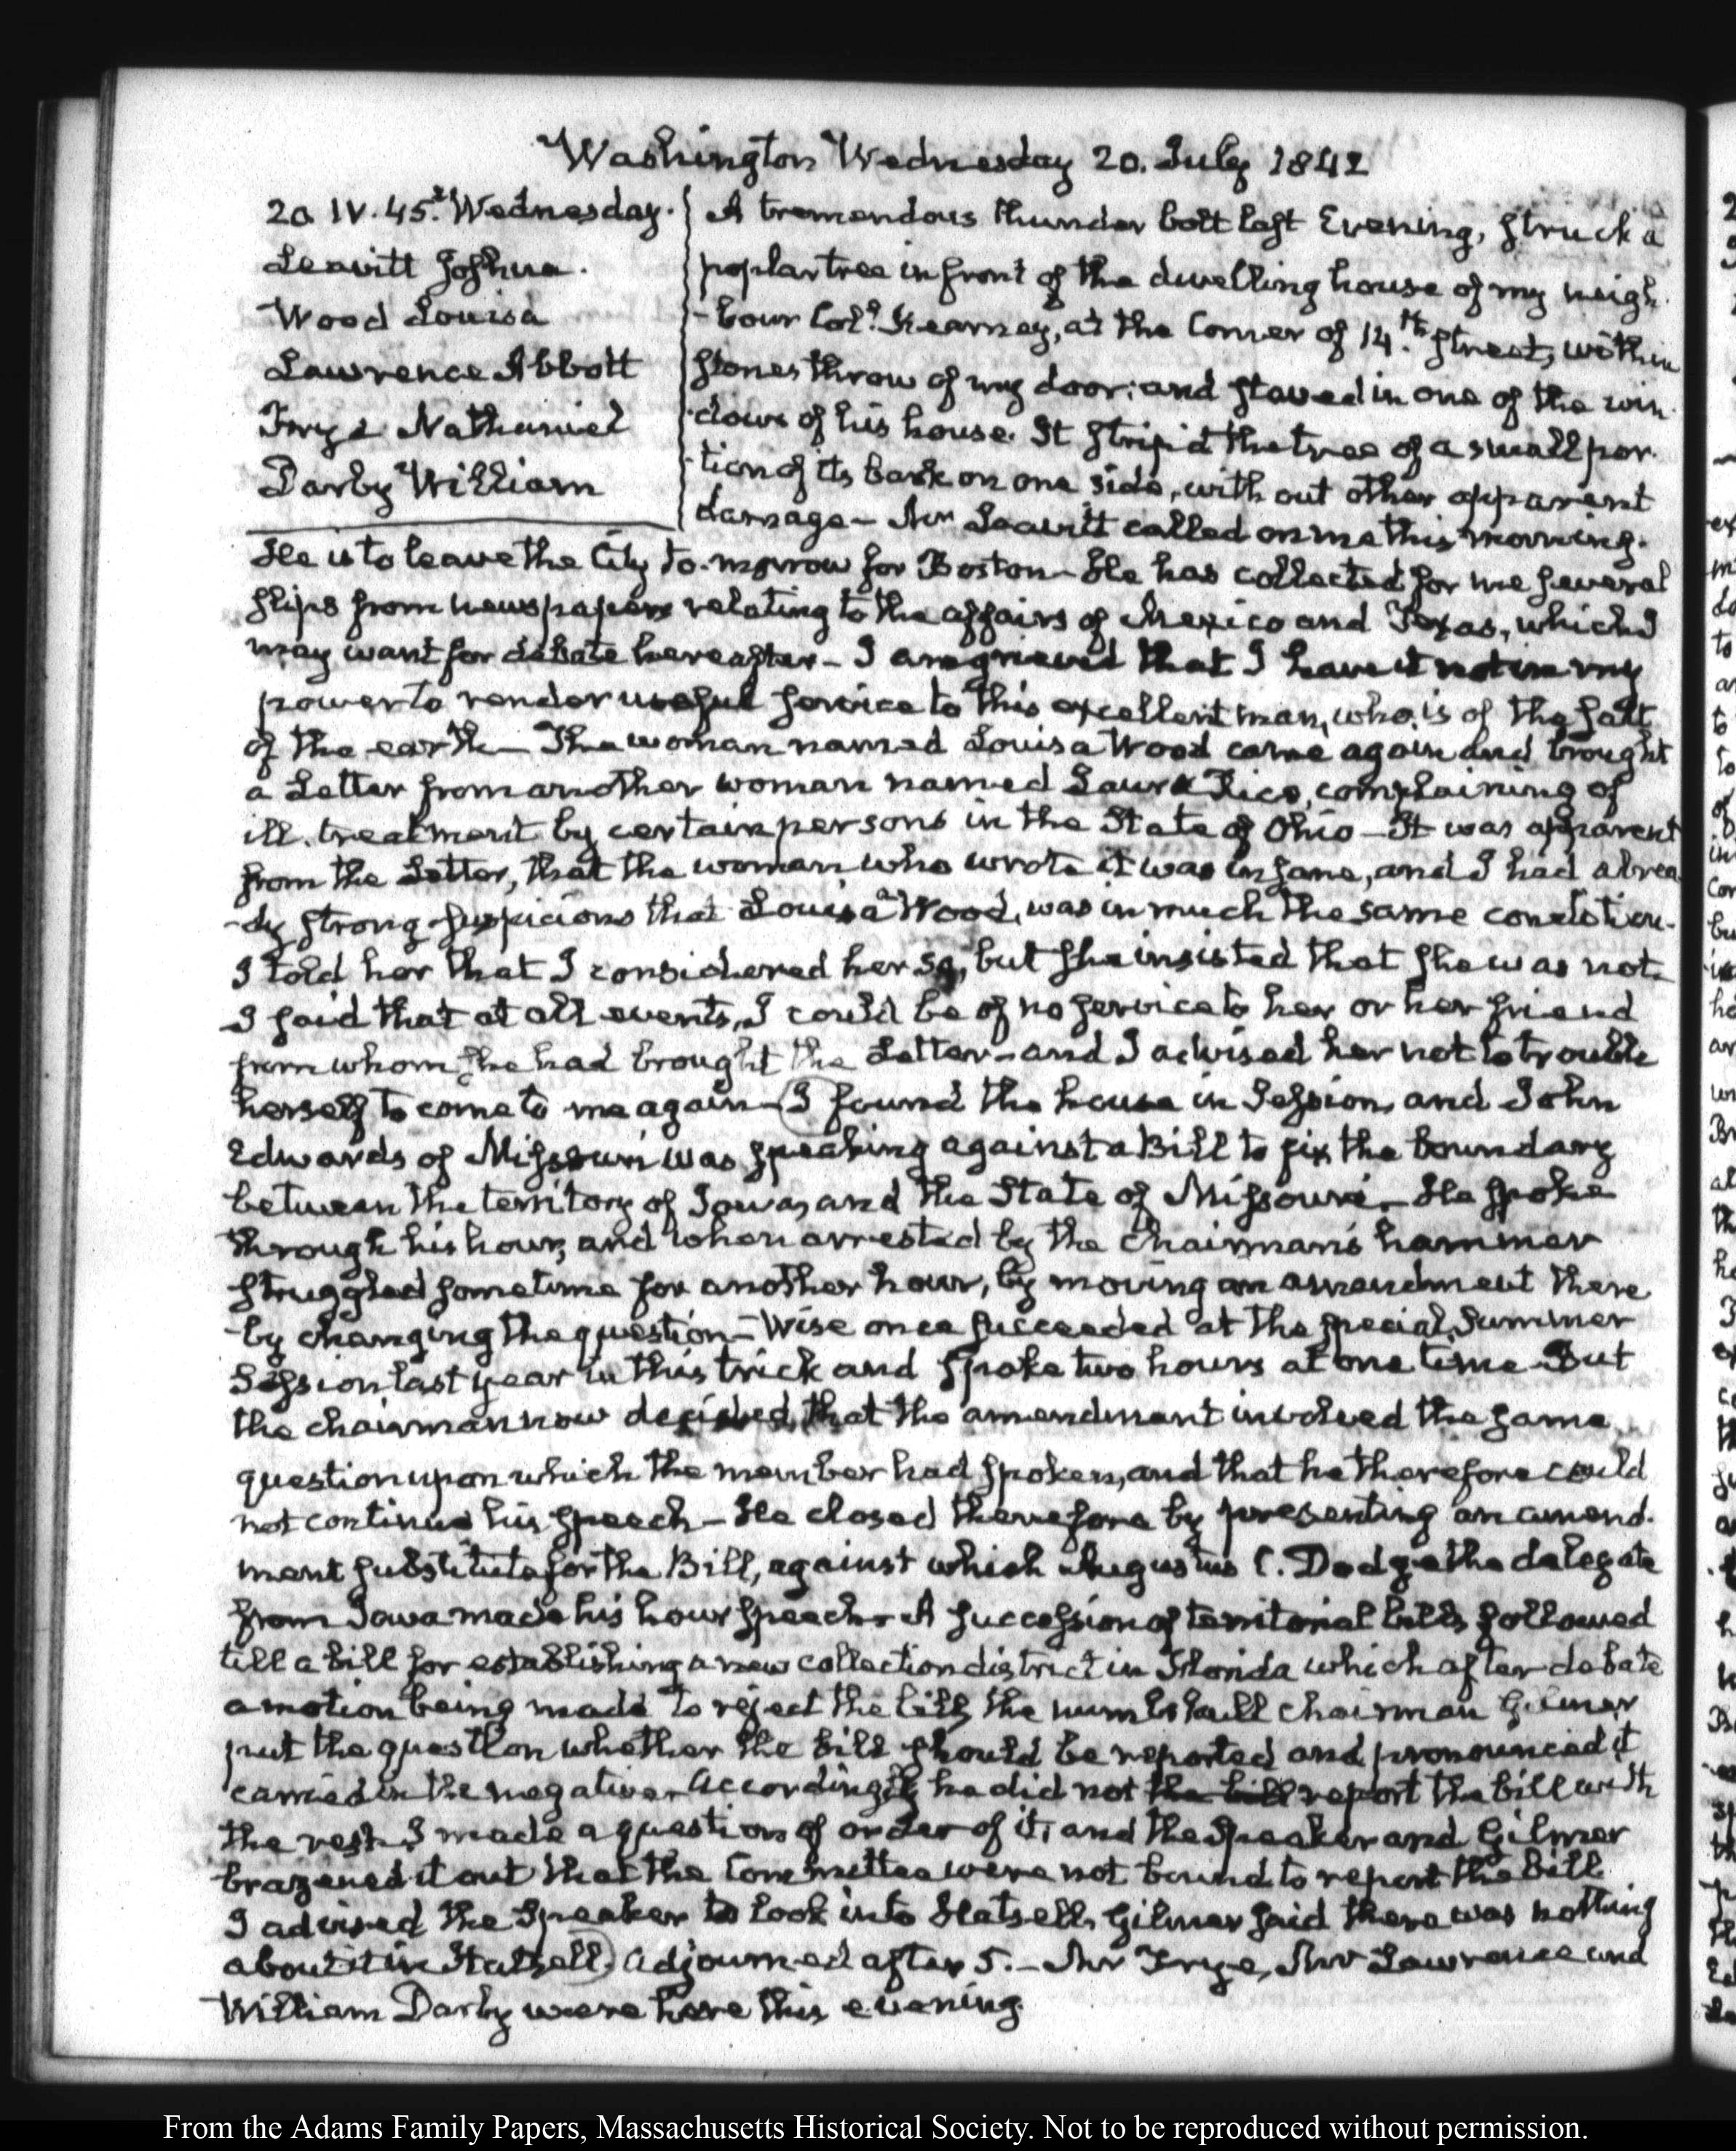 Washington Wednesday 20. July 1842
20. IV. 45. Wednesday.
Leavitt Joshua.
Wood Louisa
Lawrence Abbott
Frye Nathaniel
Darby William
A tremendous thunder bolt last Evening, struck a
poplar tree in front of the dwelling house of my neigh-
-bour Col.l Kearney, at the Corner of 14.th Street, within
stones throw of my door; and staved in one of the win-
-dows of his house. It strip'd the tree of a small por-
-tion of its bark on one side, without other apparent
damage— Mr Leavitt called on me this morning.
He is to leave the City to-morrow for Boston— He has collected for me several
slips from newspapers relating to the affairs of Mexico and Texas, which I
may want for debate hereafter— I am grieved that I have it not in my
power to render useful service to this excellent man, who is of the salt
of the earth— The woman named Louisa Wood came again and brought
a Letter from another woman named Laura Rice, complaining of
ill-treatment by certain persons in the State of Ohio— It was apparent
from the Letter, that the woman who wrote it was insane, and I had alrea-
-dy strong suspicions that Louisa Wood, was in much the same condition.
I told her that I considered her so, but she insisted that she was not.
I said that at all events, I could be of no service to her or her friend
from whom she had brought the Letter— and I advised her not to trouble
herself to come to me again— I found the house in Session, and John
Edwards of Missouri was speaking against a Bill to fix the boundary
between the territory of Iowa, and the State of Missouri— He spoke
through his hour, and when arrested by the Chairman's hammer
struggled sometime for another hour, by moving an amendment there
-by changing the question— Wise once succeeded at the special, Summer
Session last year in this trick and spoke two hours at one time But
the chairman now decided, that the amendment involved the same
question upon which the member had spoken, and that he therefore could
not continue his speech— He closed therefore by presenting an amend-
ment substitute for the Bill, against which Augustus C. Dodge the delegate
from Iowa made his hour speech— A succession of territorial bills followed
till a bill for establishing a new collection district in Florida which after debate
a motion being made to reject the bill, the chairman Gilmer
put the question whether the bill should be reported and pronounced it
carried in the negative— Accordingly he did not the bill report the bill with
the rest— I made a question of order of it, and the Speaker and Gilmer
brazened it out that the Committee were not bound to report the bill
I advised the Speaker to look into Hatsell, Gilmer said there was nothing
about it in Hatsell. Adjourned after 5.— Mr Frye, Mr Lawrence and
William Darby were here this evening.
From the Adams Family Papers, Massachusetts Historical Society. Not to be reproduced without permission.